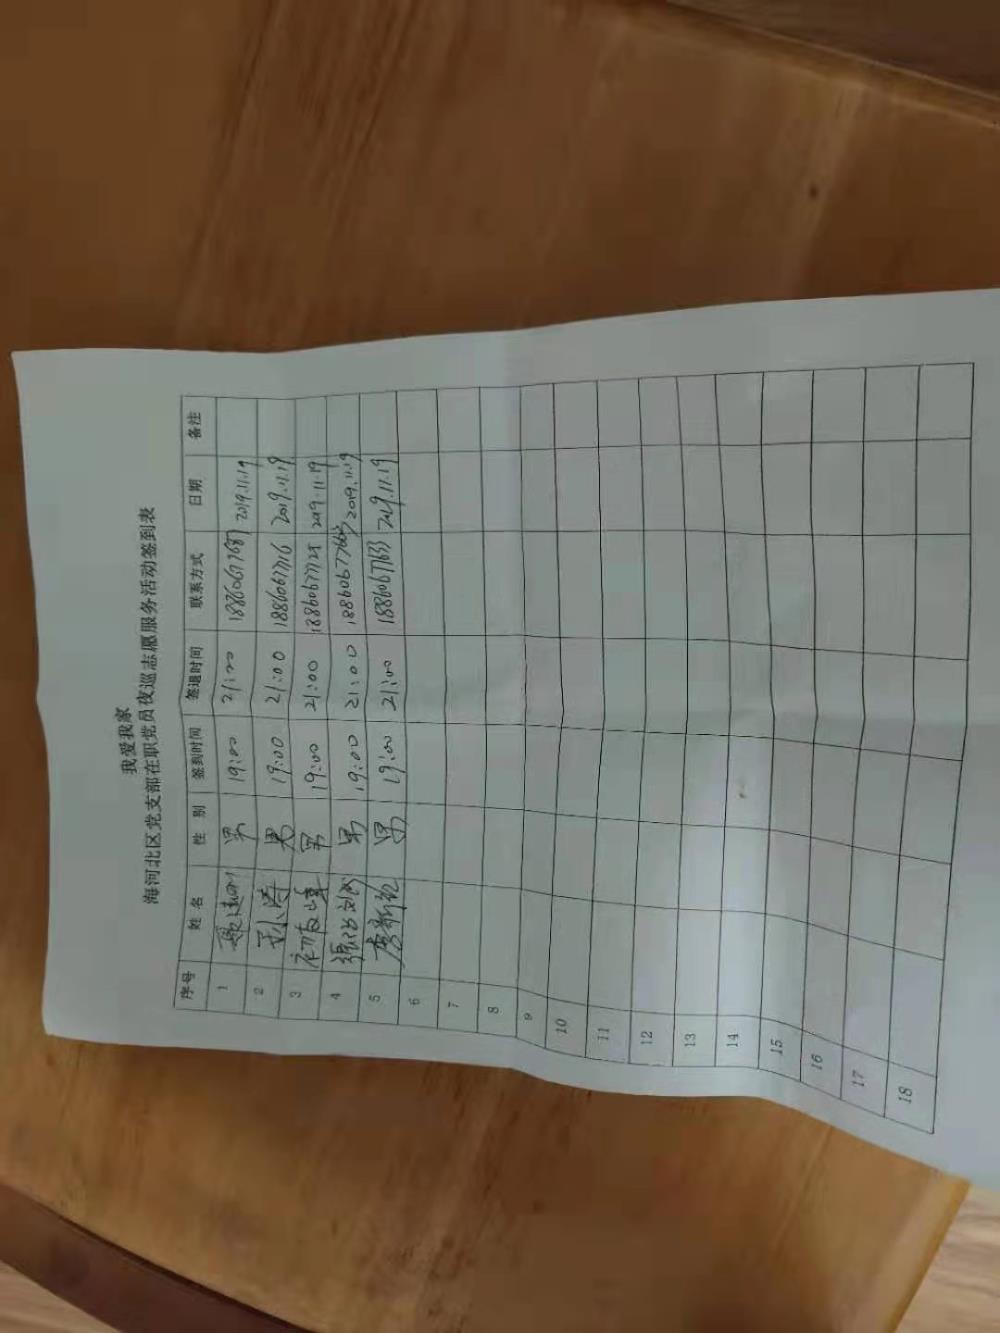 我爱我家
海河北区党支部在职党员夜巡志愿服务活动签到表
序号 姓名 性别 签到时间 签退时间 联系方式 日期 备注
1 男 19:00 21:00 2019.11.19
2 孙涛 男 19:00 21:00 18860677716 2019.11.19
3 初友峰 男 19:00 21:00 18860677725 2019.11.19
4 男 19:00 21:00 2019.11.19
5 李新纪 男 19:00 21:00 18860677633 2019.11.19
6
7
8
9
10
11
12
13
14
15
16
17
18